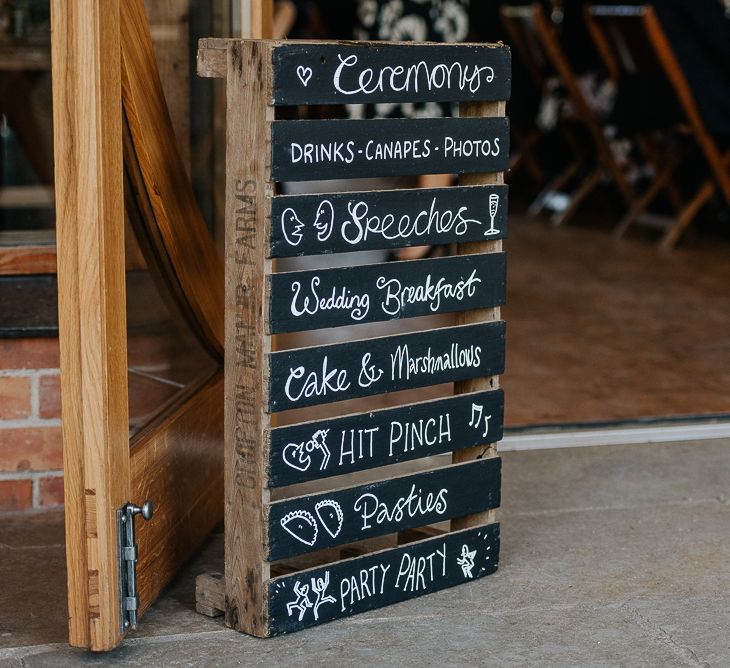 Ceremony
DRINKS - CANAPES - PHOTOS
Speeches
Wedding Breakfast
Cake & Marshmallows
HIT PINCH
Pasties
PARTY PARTY